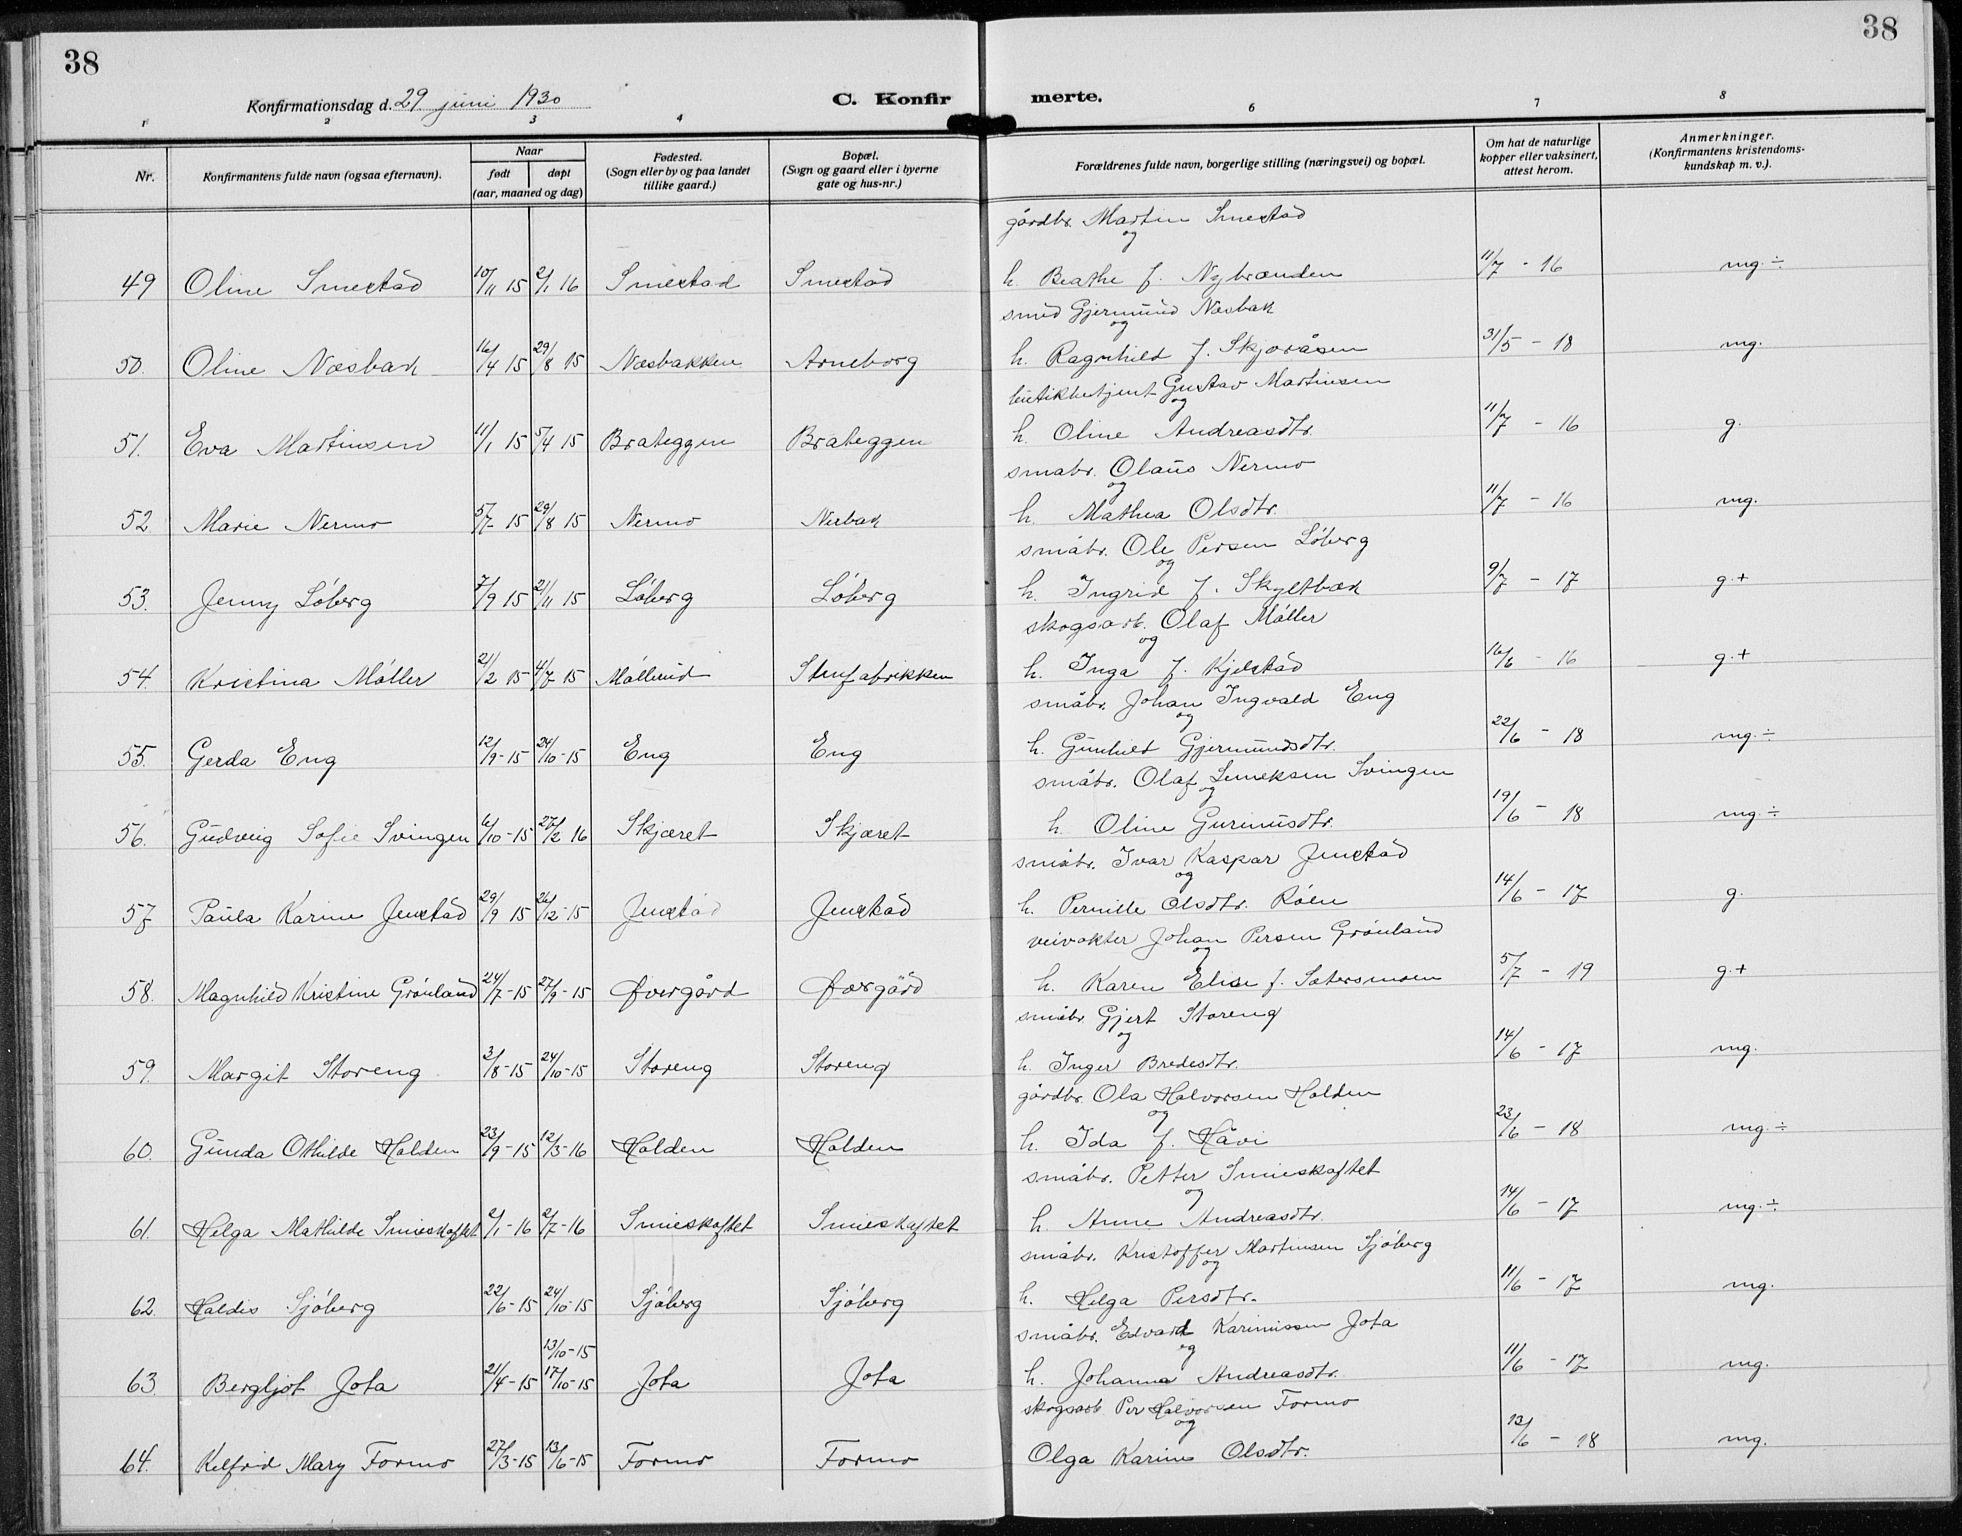 38
38
Konfirmationsdag d. 29 juni 1930
C. Konfirmerte.
1 2 3 4 6 7 8
Nr.
Konfirmantens fulde navn (ogsaa efternavn).
Naar
født
døpt
(aar, maaned og dag)
Fødested.
(Sogn eller by og paa landet
tillike gaard.)
Bopæl.
(Sogn og gaard eller i byerne
gate og hus-nr.)
Forældrenes fulde navn, borgerlige stilling (næringsvei) og bopæl.
Om hat de naturlige
kopper eller vaksinert,
attest herom.
Anmerkninger.
(Konfirmantens kristendoms-
kundskap m. v.).
gårdbr. Martin Smestad
og
49 Oline Smestad 10/11 15 2/1 16 Smestad Smestad h. Beathe f. Nybrænden 11/7 - 16 mg ÷
smed Gjermund Næsbak
og
50. Oline Næsbak 16/4 15 29/8 15 Næsbakken Arneborg h. Ragnhild f. Skjøråsen 31/5 - 18 mg.
butikbetjent Gustav Martinsen
og
51. Eva Martinsen 11/1 15 5/4 15 Brateggen Brateggen h. Oline Andreasdtr. 11/7 - 16 g.
smabr. Olaus Nermo
og
52 Marie Nermo 5/7 15 29/8 15 Nermo Nerbak h. Mathea Olsdtr. 11/7 - 16 mg.
småbr. Ole Persen Løberg
og
53. Jenny Løberg 7/9 15 21/11 15 Løberg Løberg h. Ingrid f. Skyltbæk 9/7 - 17 g.+
skogsarb. Olaf Møller
og
54. Kristina Møller 21/2 15 4/7 15 Møllerud Stenfabrikken h. Inga f. Kjelstad 16/6 - 16 g.+
småbr. Johan Ingvald Eng
og
55. Gerda Eng 12/9-15 24/10-15 Eng Eng h. Gunhild Gjermundsdtr. 22/6 - 18 mg. ÷
småbr. Olaf Svingen
og
56. Gudveig Sofie Svingen 6/10-15 27/2 16 Skjæret Skjæret h. Oline Gurinusdtr. 19/6 - 18 mg ÷
småbr. Ivar Kaspar Jenstad
og
57 Paula Karine Jenstad 29/9 15 26/12-15 Jenstad Jenstad h. Pernille Olsdtr. Røen 14/6 - 17 g.
veivokter Johan Persen Grønland
og
58. Magnhild Kristine Grønland 24/7-15 27/9-15 Øvergård h. Karen Elise f. Sætersmoen 5/7 - 19 g.+
småbr. Gjert Storeng
og
59. Margit Storeng 3/8-15 24/10-15 Storeng Storeng h. Inger Bredesdtr. 14/6 - 17 mg.
gårdbr. Ola Halvorsen Halden
og
60. Gunda Othilde Halden 23/9-15 12/3-16 Halden Halden h. Ida f. Håvi 23/6 - 18 mg. ÷
småbr. Petter Smieskaftet
og
61. Helga Mathilde Smieskaftet 2/1-16 2/7-16 Smieskaftet Smieskaftet h. Anne Andreasdtr. 14/6 - 17 mg. ÷
småbr. Kristoffer Martinsen Sjøberg
og
62. Haldis Sjøberg 22/6-15 24/10-15 Sjøberg Sjøberg h. Helga Persdtr. 11/6 - 17 mg.
småbr. Edvard Karinussen Jota
og
13/10-15
63. Bergljot Jota 21/4-15 17/10-15 Jota Jota h. Johanna Andreasdtr. 11/6 - 17 mg.
skogsarb. Per Halvorsen Formo
og
64. Kelfrid Mary Formo 27/3-15 13/6-15 Formo Formo Olga Karine Olsdtr. 13/6 - 18 mg.